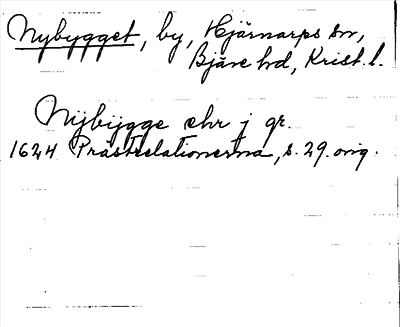 Nybygget, by, Hjärnarps sn,
Bjäre hd, Krist. l.
Nÿbÿgge chr j gr.
1624 Prästrelationerna, s. 29. orig.